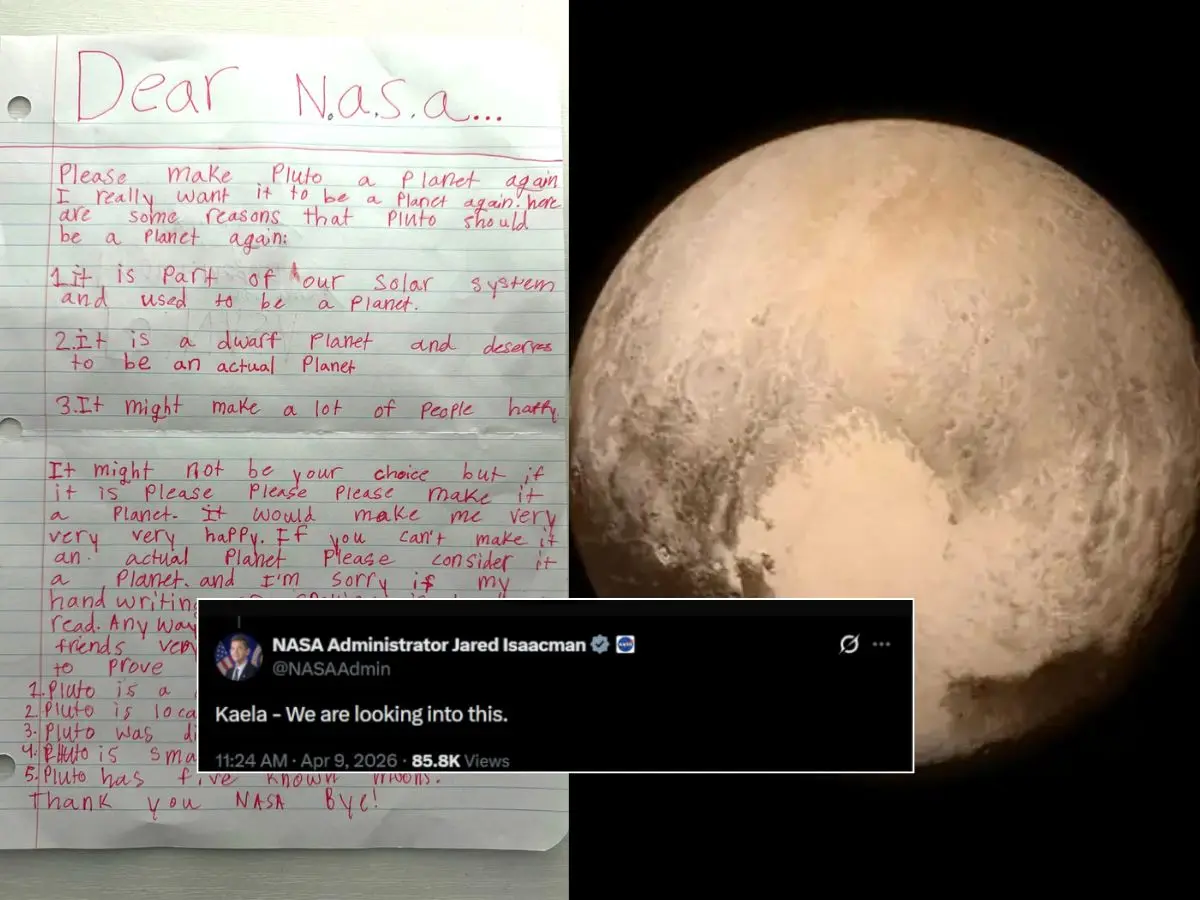 Dear N.a.s.a...
Please make Pluto a Planet again
I really want it to be a Planet again. here
are some reasons that Pluto should
be a Planet again:
1.it is part of our solar system
and used to be a Planet.
2.It is a dwarf Planet and deserves
to be an actual Planet
3.It might make a lot of people happy
It might not be your choice but if
it is Please Please Please make it
a Planet. it would make me very
very very happy. If you can't make it
an actual Planet Please consider it
a Planet. and I'm sorry if my
hand writing
read. Any way
friends very
to prove
1. Pluto is a
2. Pluto is loca
3. Pluto was di
4. Pluto is sma
5. Pluto has five known moons.
Thank you NASA Bye!
NASA Administrator Jared Isaacman
@NASAAdmin
Kaela - We are looking into this.
11:24 AM · Apr 9, 2026 · 85.8K Views